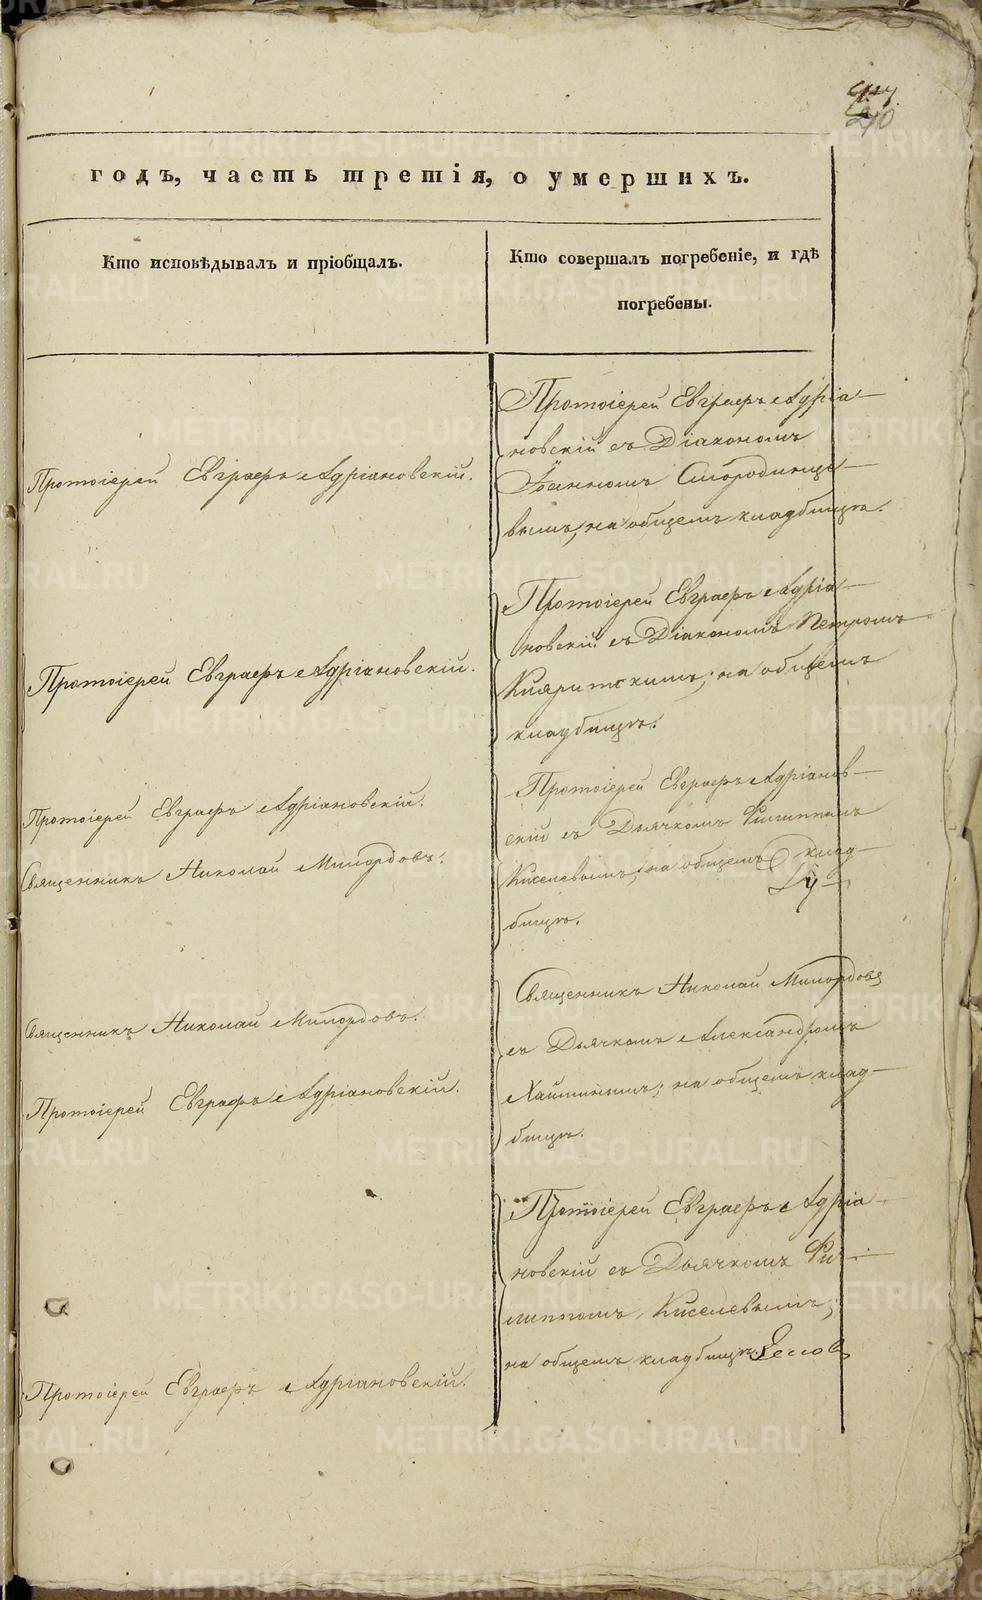 годъ, часть третія, о умершихъ.
Кто исповѣдывалъ и пріобщалъ.
Кто совершалъ погребеніе, и гдѣ
погребены.
Протоіерей Евграфъ Адріановскій.
Протоіерей Евграфъ Адріа-
новскій съ Діакономъ
Іоанномъ Смородинце-
вымъ, на общемъ кладбищѣ.
Протоіерей Евграфъ Адріановскій.
Протоіерей Евграфъ Адріа-
новскій съ Діакономъ Петромъ
на общемъ
кладбищѣ.
Протоіерей Евграфъ Адріановскій.
Священникъ Николай Милордовъ.
Протоіерей Евграфъ Адріанов-
скій съ Дьячкомъ Филиппомъ
Киселевымъ, на общемъ клад-
бищѣ.
Священникъ Николай Милордовъ.
Протоіерей Евграфъ Адріановскій.
Священникъ Николай Милордовъ
съ Дьячкомъ Александромъ
на общемъ клад-
бищѣ.
Протоіерей Евграфъ Адріановскій.
Протоіерей Евграфъ Адріа
новскій съ Дьячкомъ Фи-
липпомъ Киселевымъ;
на общемъ кладбищѣ.
METRIKI.GASO-URAL.RU